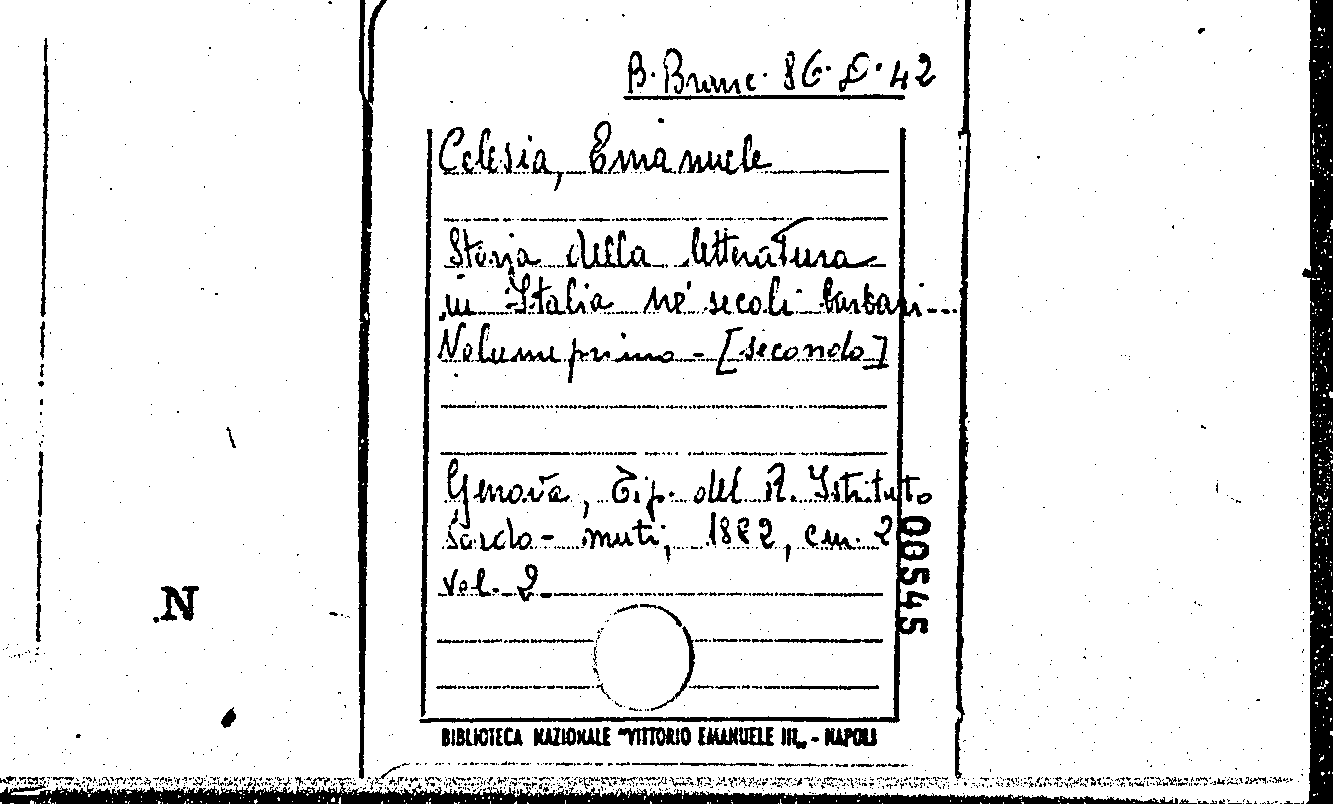 B. Brunc. 86. D. 42
Celesia, Emanuele
Storia della letteratura
in Italia ne' secoli barbari...
Volume primo - [secondo]
Genova, Tip. del R. Istituto
Sordo-muti, 1882, cm. 2
vol. 2
00545
.N
BIBLIOTECA NAZIONALE "VITTORIO EMANUELE III„ - NAPOLI